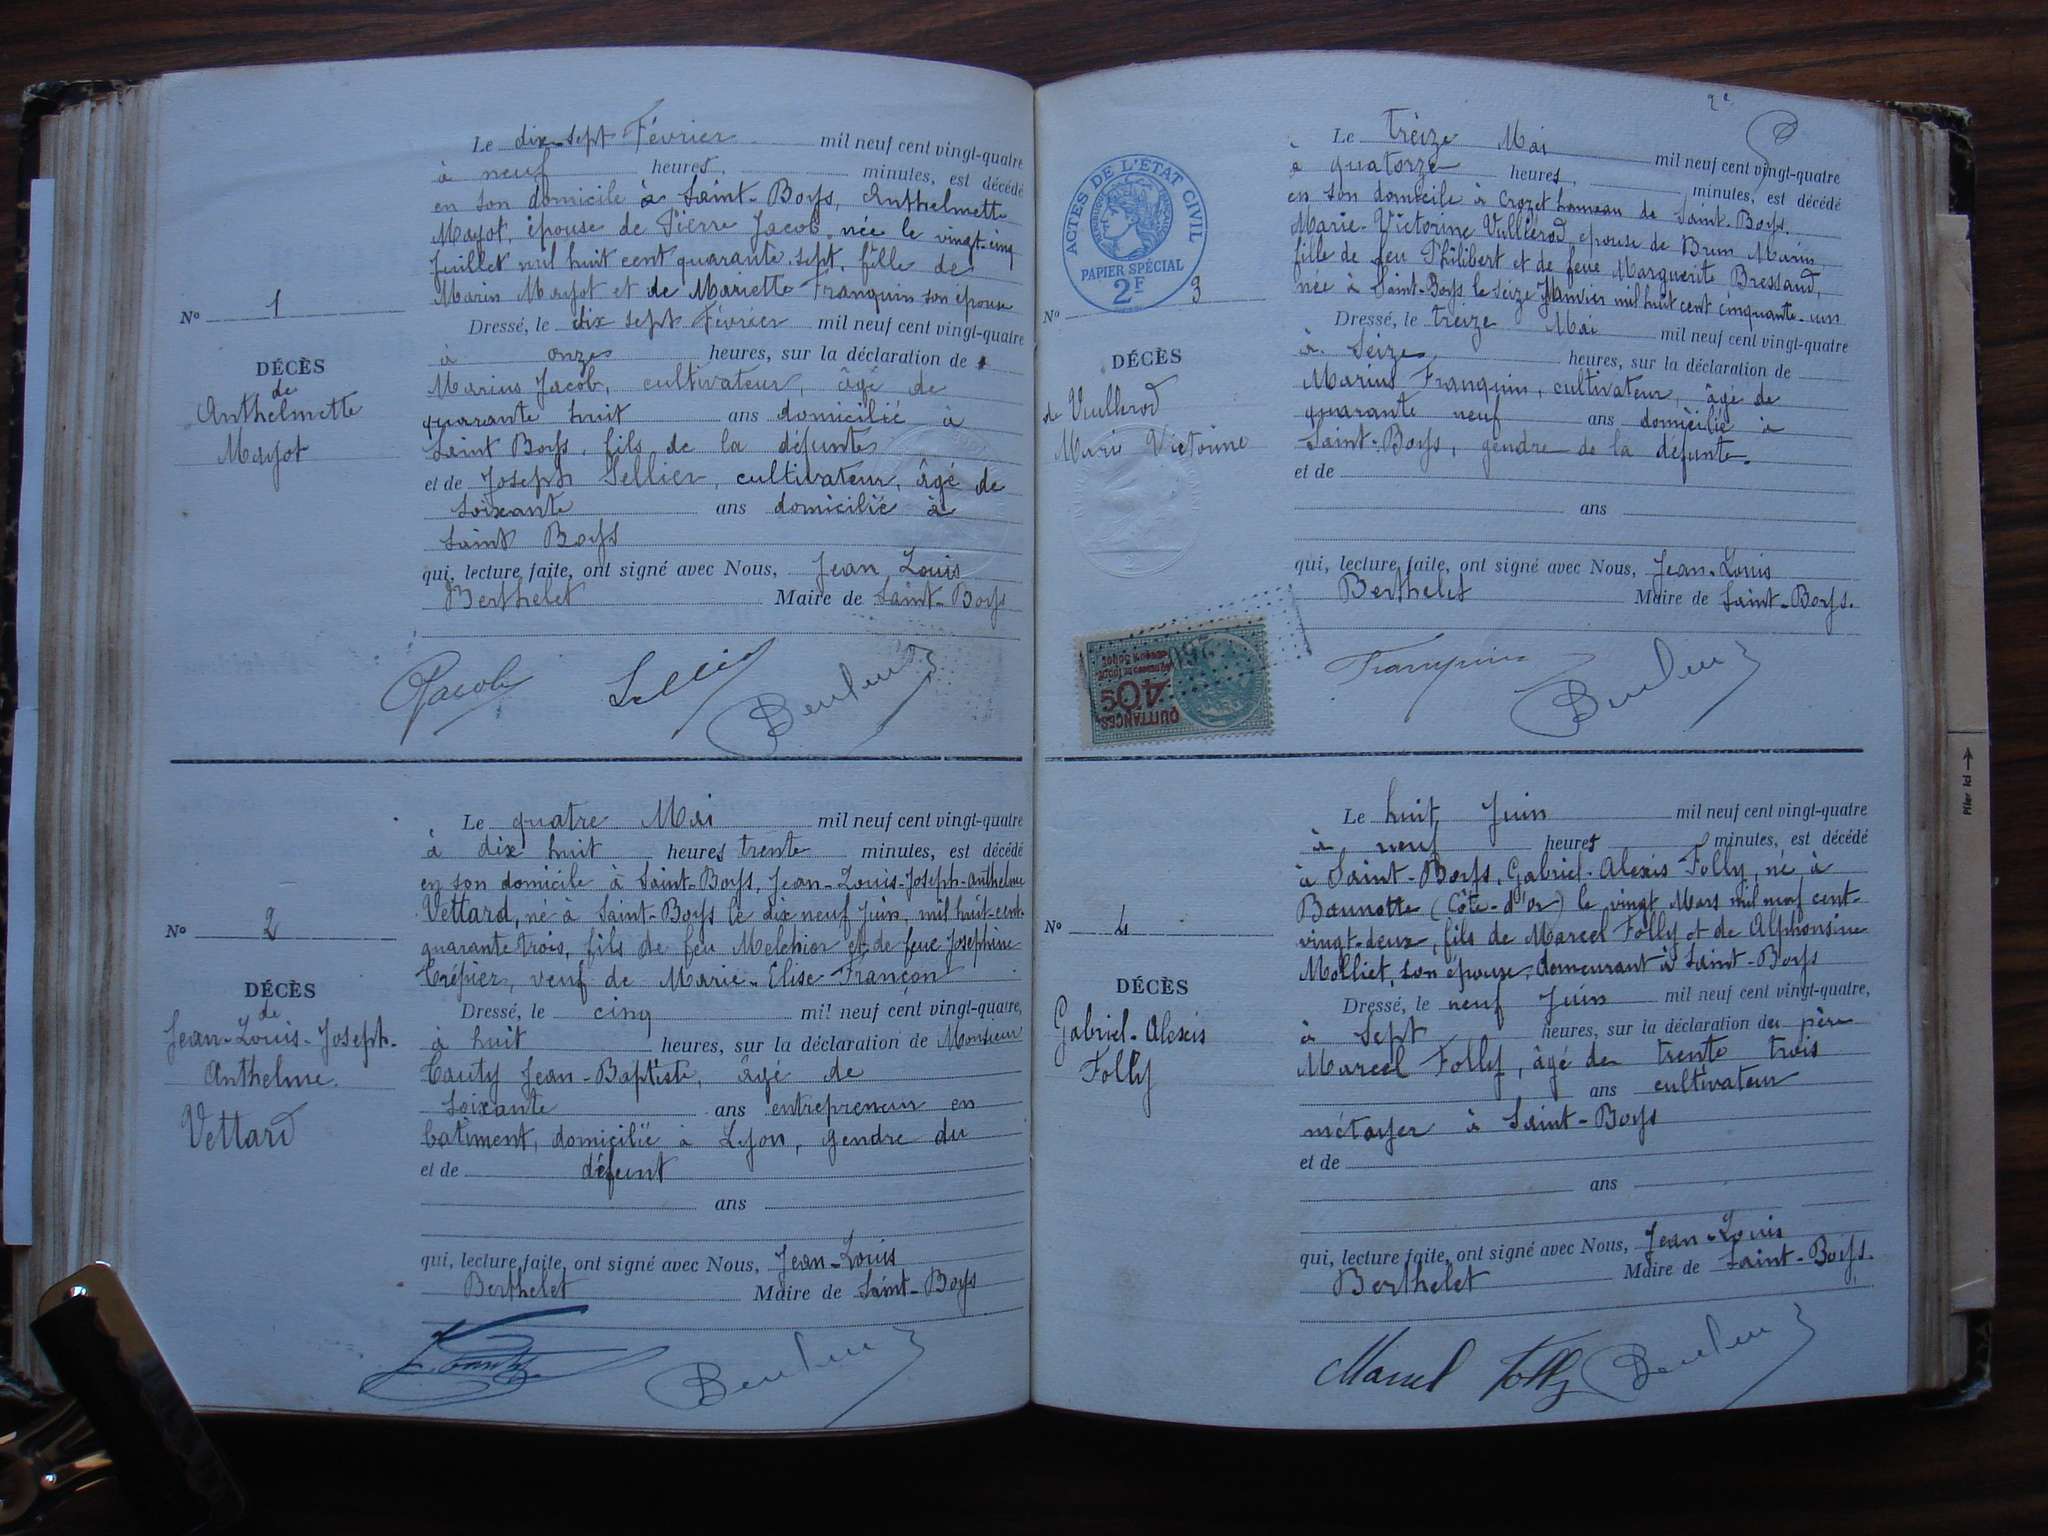 Le dix-sept Février mil neuf cent vingt-quatre
à neuf heures, minutes, est décédé
en son domicile à Saint-Boys, Anthelmette
Mayot, épouse de Pierre Jacob, née le vingt-cinq
Juillet mil huit cent quarante-sept, fille de
Marin Mayot et de Mariette Franquin son épouse
Nº 1
Dressé, le dix sept Février mil neuf cent vingt-quatre
à onze heures, sur la déclaration de
DÉCÈS
de
Anthelmette
Mayot
Marius Jacob, cultivateur, âgé de
quarante huit ans domicilié à
Saint Boys, fils de la défunte
et de Joseph Sellier, cultivateur, âgé de
soixante ans domicilié à
Saint Boys
qui, lecture faite, ont signé avec Nous, Jean Louis
Berthelet Maire de Saint-Boys
Jacob
Le quatre Mai mil neuf cent vingt-quatre
à dix huit heures trente minutes, est décédé
en son domicile à Saint-Boys, Jean-Louis-Joseph-Anthelme
Vettard, né à Saint-Boys le dix neuf Juin, mil huit-cent-
quarante trois, fils de feu Melchior et de feue Josephine
Crépier, veuf de Marie-Elise Françon
Nº 2
Dressé, le cinq mil neuf cent vingt-quatre,
à huit heures, sur la déclaration de Monsieur
DÉCÈS
de
Jean-Louis-Joseph-
Anthelme
Vettard
Cauty Jean-Baptiste, âgé de
soixante ans entrepreneur en
batiment, domicilié à Lyon, gendre du
et de défunt
ans
qui, lecture faite, ont signé avec Nous, Jean-Louis
Berthelet Maire de Saint-Boys
2e
Le treize Mai mil neuf cent vingt-quatre
à quatorze heures, minutes, est décédé
en son domicile à Crozet hameau de Saint-Boys.
Marie-Victorine Vullierod épouse de Brun Marin,
fille de feu Philibert et de feue Marguerite Bressand,
née à Saint-Boys le seize Janvier mil huit cent cinquante-un
ACTES DE L'ÉTAT CIVIL
RÉPUBLIQUE FRANÇAISE
PAPIER SPÉCIAL
2F
Nº 3
Dressé, le treize Mai mil neuf cent vingt-quatre
à seize heures, sur la déclaration de
DÉCÈS
de Vullerod
Marie Victorine
Marius Franquin, cultivateur, âgé de
quarante neuf ans domicilié à
Saint-Boys, gendre de la défunte.
et de
ans
qui, lecture faite, ont signé avec Nous, Jean-Louis
Berthelet Maire de Saint-Boys.
QUITTANCES
40
Franquin
Le huit Juin mil neuf cent vingt-quatre
à neuf heures minutes, est décédé
à Saint-Boys, Gabriel-Alexis Folly, né à
Baunotte (Côte-d'Or) le vingt Mars mil neuf cent-
vingt-deux, fils de Marcel Folly et de Alphonsine
Molliet, son épouse, demeurant à Saint-Boys
Nº 4
Dressé, le neuf Juin mil neuf cent vingt-quatre,
à sept heures, sur la déclaration du père
DÉCÈS
Gabriel-Alexis
Folly
Marcel Folly, âgé de trente trois
ans cultivateur
métayer à Saint-Boys
et de
ans
qui, lecture faite, ont signé avec Nous, Jean-Louis
Berthelet Maire de Saint-Boys.
Marcel Folly
Hier ici →